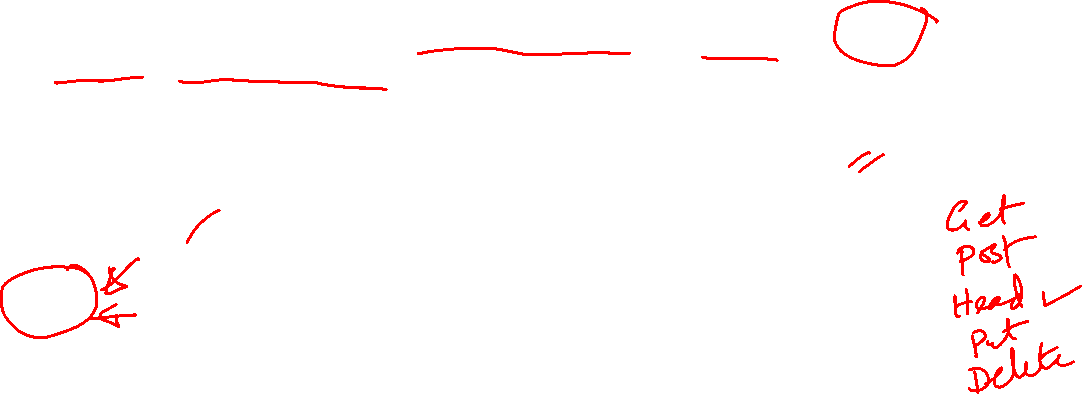 Get
Post
Head ✓
Put
Delete